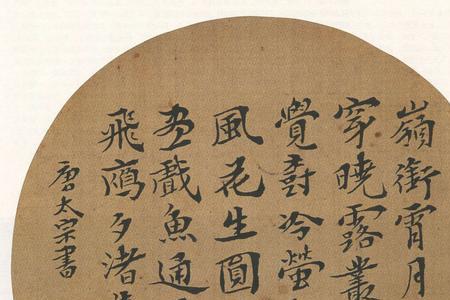 嶺銜霄月
穿曉露叢
覺樹冷螢
風花生圓
盡戲魚通
飛鴈夕渚
唐太宗書